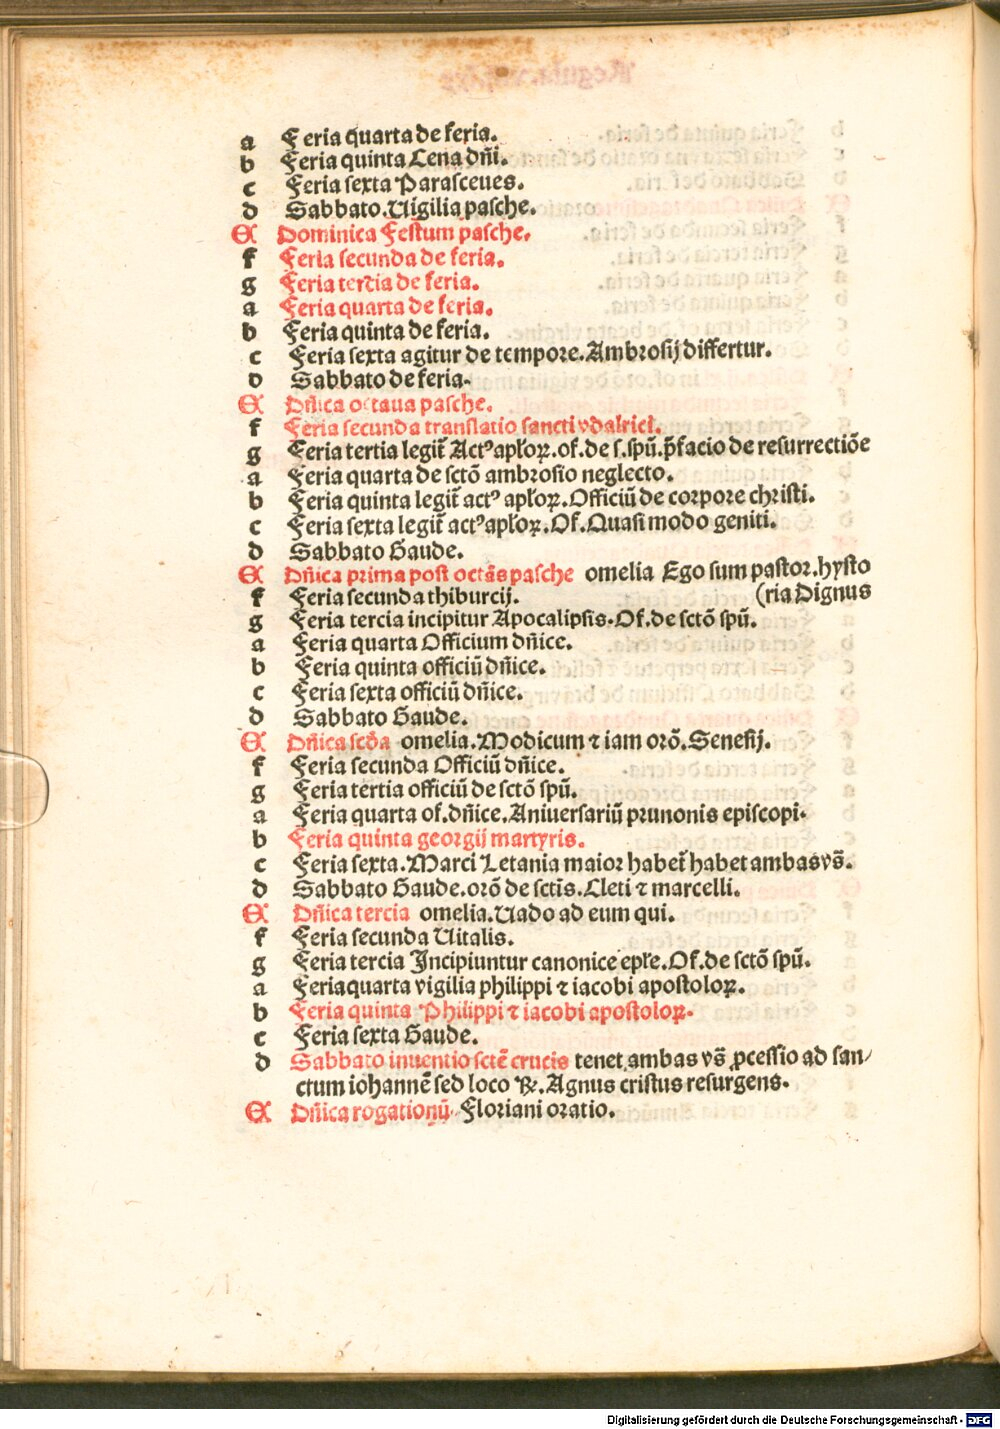 a Feria quarta de feria.
b Feria quinta Cena dñi.
c Feria sexta Parasceues.
d Sabbato. Uigilia pasche.
E Dominica Festum pasche.
f Feria secunda de feria.
g Feria tercia de feria.
a Feria quarta de feria.
b Feria quinta de feria.
c Feria sexta agitur de tempore. Ambrosij differtur.
d Sabbato de feria.
E Dñica octaua pasche.
f Feria secunda translatio sancti vdalrici.
g Feria tertia legit̄ Actꝰ apłoꝝ. of. de s. spū. p̄facio de resurrectiōe
a Feria quarta de sctō ambrosio neglecto.
b Feria quinta legit̄ actꝰ apłoꝝ. Officiū de corpore christi.
c Feria sexta legit̄ actꝰ apłoꝝ. Of. Quasi modo geniti.
d Sabbato Gaude.
E Dñica prima post octãs pasche omelia Ego sum pastor. hysto
f Feria secunda thiburcij. (ria Dignus
g Feria tercia incipitur Apocalipsis. Of. de sctō spū.
a Feria quarta Officium dñice.
b Feria quinta officiū dñice.
c Feria sexta officiū dñice.
d Sabbato Gaude.
E Dñica scđa omelia. Modicum ⁊ iam orō. Senesij.
f Feria secunda Officiū dñice.
g Feria tertia officiū de sctō spū.
a Feria quarta of. dñice. Aniuersariū prunonis episcopi.
b Feria quinta georgij martyris.
c Feria sexta. Marci Letania maior habet̄ habet ambas vs̄.
d Sabbato Gaude. orō de sctis̄. Cleti ⁊ marcelli.
E Dñica tercia omelia. Uado ad eum qui.
f Feria secunda Uitalis.
g Feria tercia Incipiuntur canonice epłe. Of. de sctō spū.
a Feria quarta vigilia philippi ⁊ iacobi apostoloꝝ.
b Feria quinta Philippi ⁊ iacobi apostoloꝝ.
c Feria sexta Gaude.
d Sabbato inuentio sctē crucis tenet ambas vs̄ ꝓcessio ad san/
ctum iohannē sed loco ℟. Agnus cristus resurgens.
E Dñica rogationū. Floriani oratio.
Digitalisierung gefördert durch die Deutsche Forschungsgemeinschaft - DFG